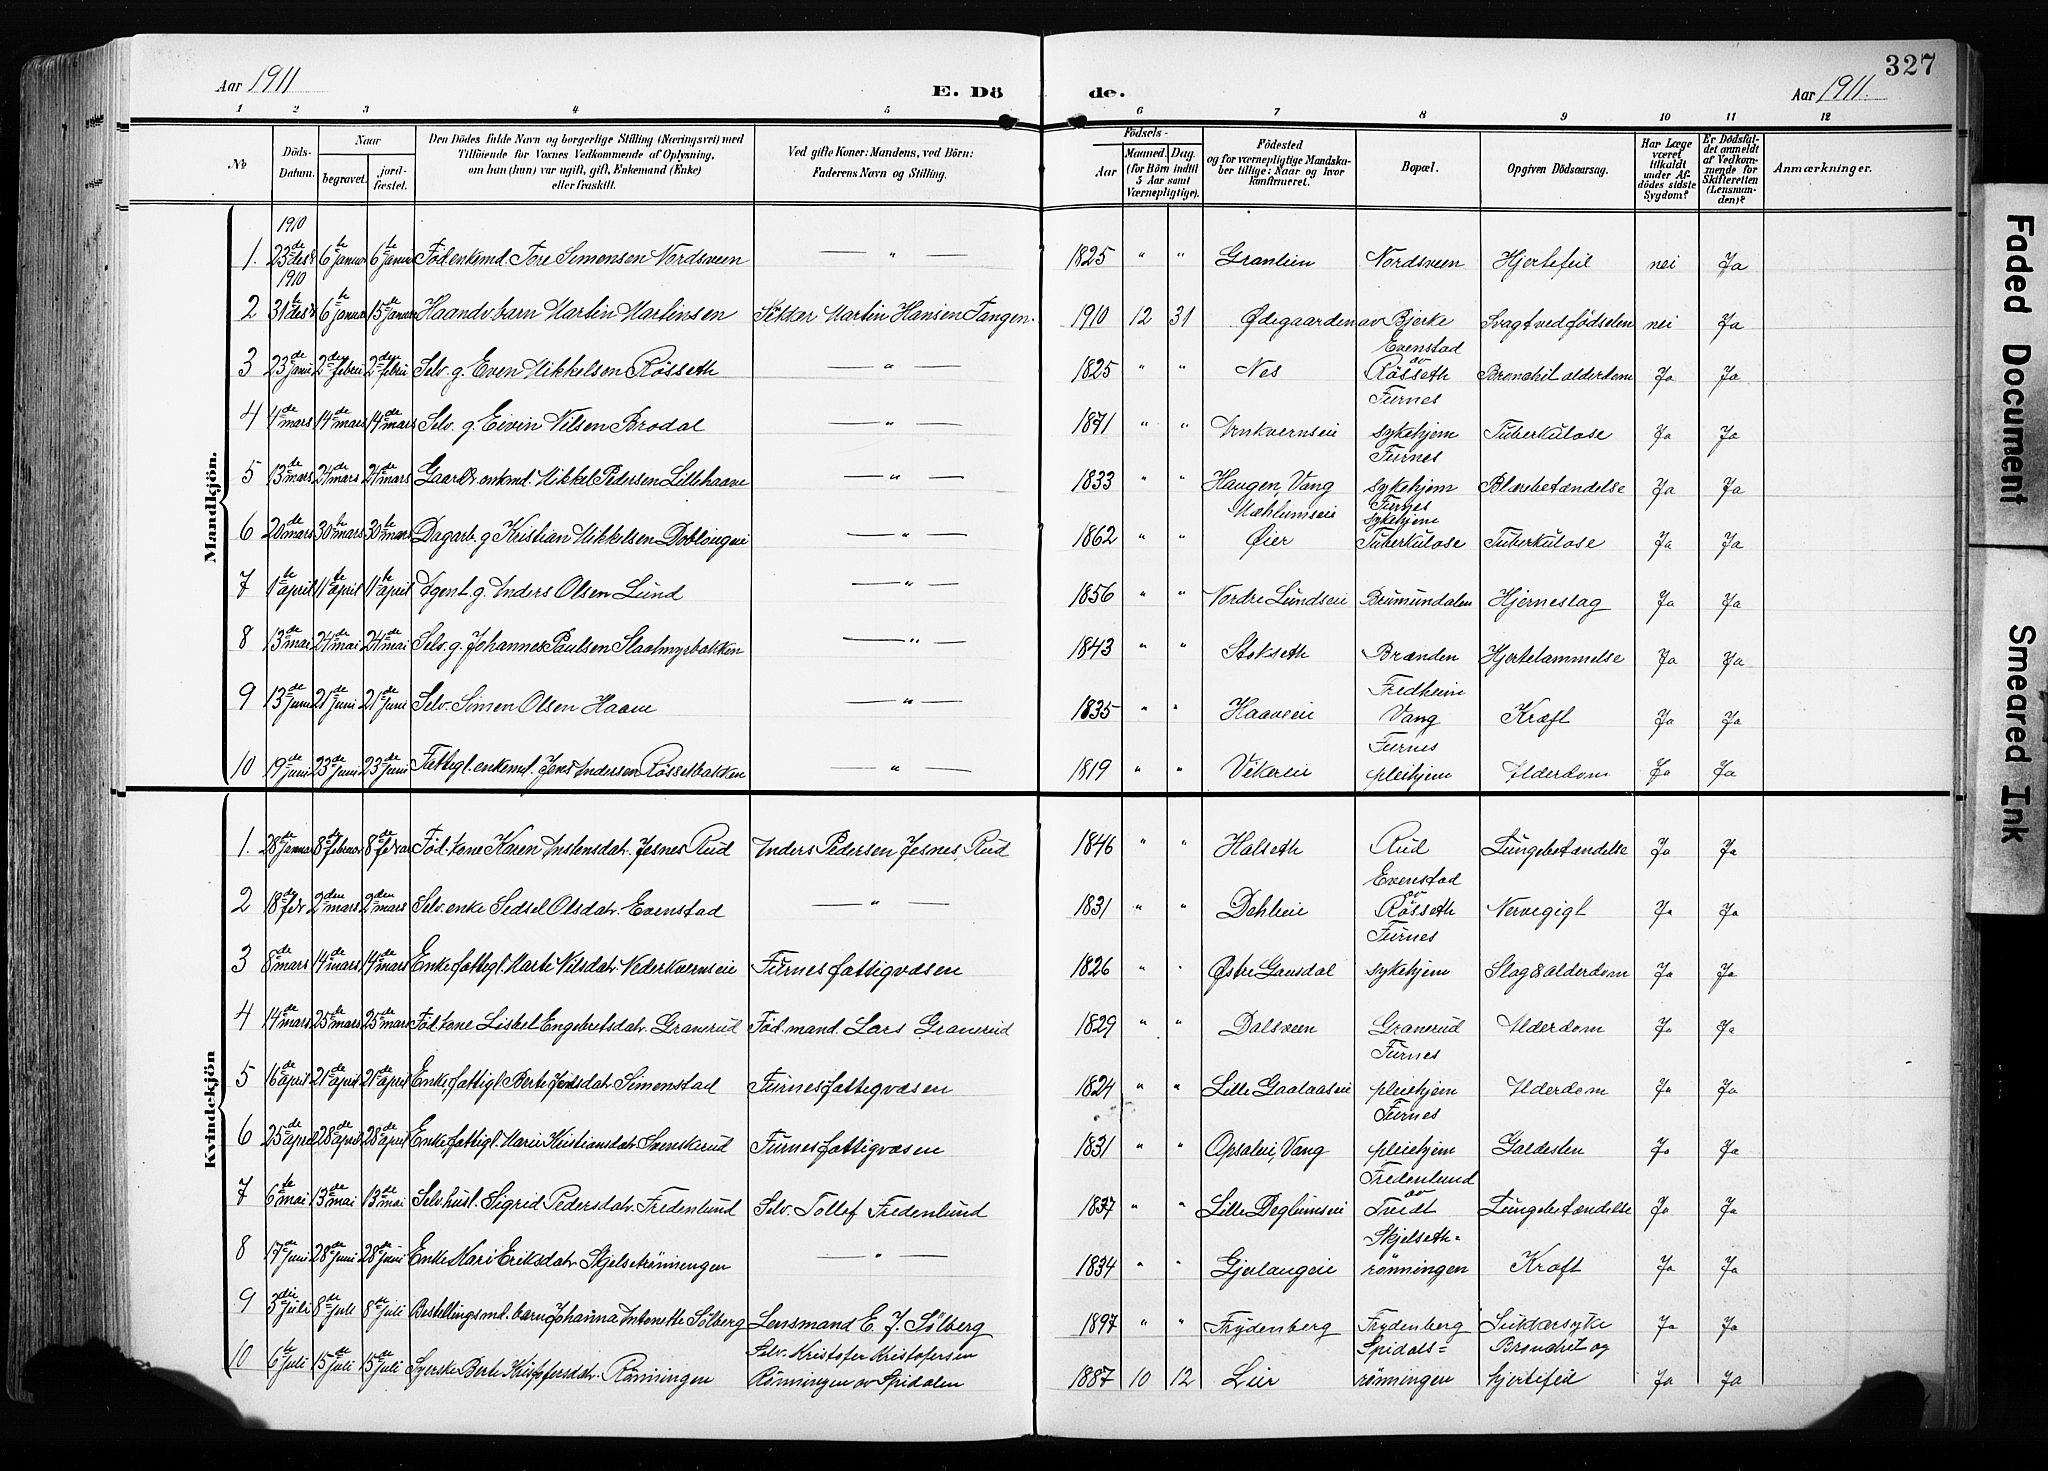 327
Aar 1911
E. Dö de.
Aar 1911.
1 2 3 4 5 6 7 8 9 10 11 12
No
Döds-Datum.
Naar
begravet.
jordfæstet.
Den Dödes fulde Navn og borgerlige Stilling (Næringsvei) med
Tilföiende for Voxnes Vedkommende af Oplysning,
om han (hun) var ugift, gift, Enkemand (Enke)
eller fraskilt.
Ved gifte Koner: Mandens, ved Börn:
Faderens Navn og Stilling.
Födsels-
Aar
Maaned. Dag.
(for Börn indtil
5 Aar samt
Værnepligtige).
Födested
og for værnepligtige Mandskaber
tillige: Naar og hvor
konfirmeret.
Bopæl.
Opgiven Dödsaarsag.
Har Læge
været
tilkaldt
under Afdödes
sidste
Sygdom?
Er Dödsfaldet
anmeldt
af Vedkommende
for
Skifteretten
(Lensmanden)?
Anmærkninger.
Mandkjön.
1910
1. 23de des 6te januar 6te januar Föd.enkmd. Tore Simensen Nordsveen — " — 1825 " " Granlien Nordsveen Hjertefeil nei Ja
1910
2 31te des 6te januar 15de januar Haandv. barn Martin Martinsen Martin Hansen Tangen. 1910 12 31 Ødegaarden av Bjerke Svagt ved fødselen nei Ja
3 23de janu 2den febru 2den febru Selv. g. Even Mikkelsen Røsseth — " — 1825 " " Nes Evenstad av Røsseth Bronchit alderdom Ja Ja
4 4de mars 14de mars 14de mars Selv. g. Eivin Nilsen Brodal — " — 1871 " " Furnes sykehjem Tuberkulose Ja Ja
5 13de mars 24de mars 24de mars Gaardb. enkmd. Mikkel Pedersen Lillehaave — " — 1833 " " Haugen, Vang Furnes sykehjem Blærebetændelse Ja Ja
6 20de mars 30te mars 30te mars Dagarb. g Kristian Mikkelsen — " — 1862 " " Mæhlumseie Øier Furnes sykehjem Tuberkulose Tuberkulose Ja Ja
7 1ste april 11te april 11te april Agent g. Anders Olsen Lund — " — 1856 " " Nordre Lundseie Brumundalen Hjerneslag Ja Ja
8 13de mai 24de mai 24de mai Selv. g. Johannes Paulsen Slaatmyrbakken — " — 1843 " " Stokseth Brænden Hjertelammelse Ja Ja
9 13de juni 21de juni 21de juni Selv. Simen Olsen Haave — " — 1835 " " Haaveeie Fredheim Vang Kræft Ja Ja
10 19de juni 23de juni 23de juni Fattigl. enkemd. Jens Andersen Røssetbakken — " — 1819 " " Vikereie Furnes pleiehjem Alderdom Ja Ja
Kvindekjön
1. 28de januar 8de februar 8de februar Föd. kone Karen Jesnes Rud Anders Pedersen Jesnes, Rud 1846 " " Halseth Rud Lungebetændelse Ja Ja
2 18de febr 2den mars 2den mars Selv. enke Sedsel Olsdatr. Evenstad — " — 1831 " " Dehlieie Evenstad av Røsseth Nervegigt Ja Ja
3 8de mars 14de mars 14de mars Enke, fattigl. Marte Nilsdatr. Nederkvernseie Furnes fattigvæsen 1826 " " Østre Gausdal Furnes sykehjem Slag & alderdom Ja Ja
4 14de mars 25de mars 25de mars Föd. kone Lisbet Engebretsdatr. Granerud Föd. mand. Lars Granerud 1829 " " Dalsveen Granerud Alderdom Ja Ja
5 16de april 21de april 21de april Enke, fattigl. Berte Jensdatr. Simenstad Furnes fattigvæsen 1824 " " Lille Gaalaaseie Furnes pleiehjem Alderdom Ja Ja
6 25de april 28de april 28de april Enke, fattigl. Mari Kristiansdatr. Svenskerud Furnes fattigvæsen 1831 " " Opsaleie, Vang Furnes pleiehjem Galdesten Ja Ja
7 6te mai 13de mai 13de mai Selv. hust. Sigrid Pedersdatr. Fredenlund Selv. Tollef Fredenlund 1837 " " Lille Deglumseie Fredenlund av Tveidt Lungebetændelse Ja Ja
8 17de juni 28de juni 28de juni Enke Mari Eriksdatr Skjelsetrønningen — " — 1834 " " Gjerlaugeie Skjelseth=rønningen Kræft Ja Ja
9 3die juli 8de juli 8de juli Bestillingsmd. barn Johanna Antonette Sølberg Lensmand E. J. Sølberg 1897 " " Frydenberg Frydenberg Sukkersyke Ja Ja
10 6te juli 15de juli 15de juli Syerske Berte Kristofersdatr. Rønningen Selv. Kristofer Kristofersen Rønningen av Spidalen 1887 10 12 Lier Spidals=rønningen Bronchit og hjertefeil Ja Ja
Faded Document
Smeared Ink